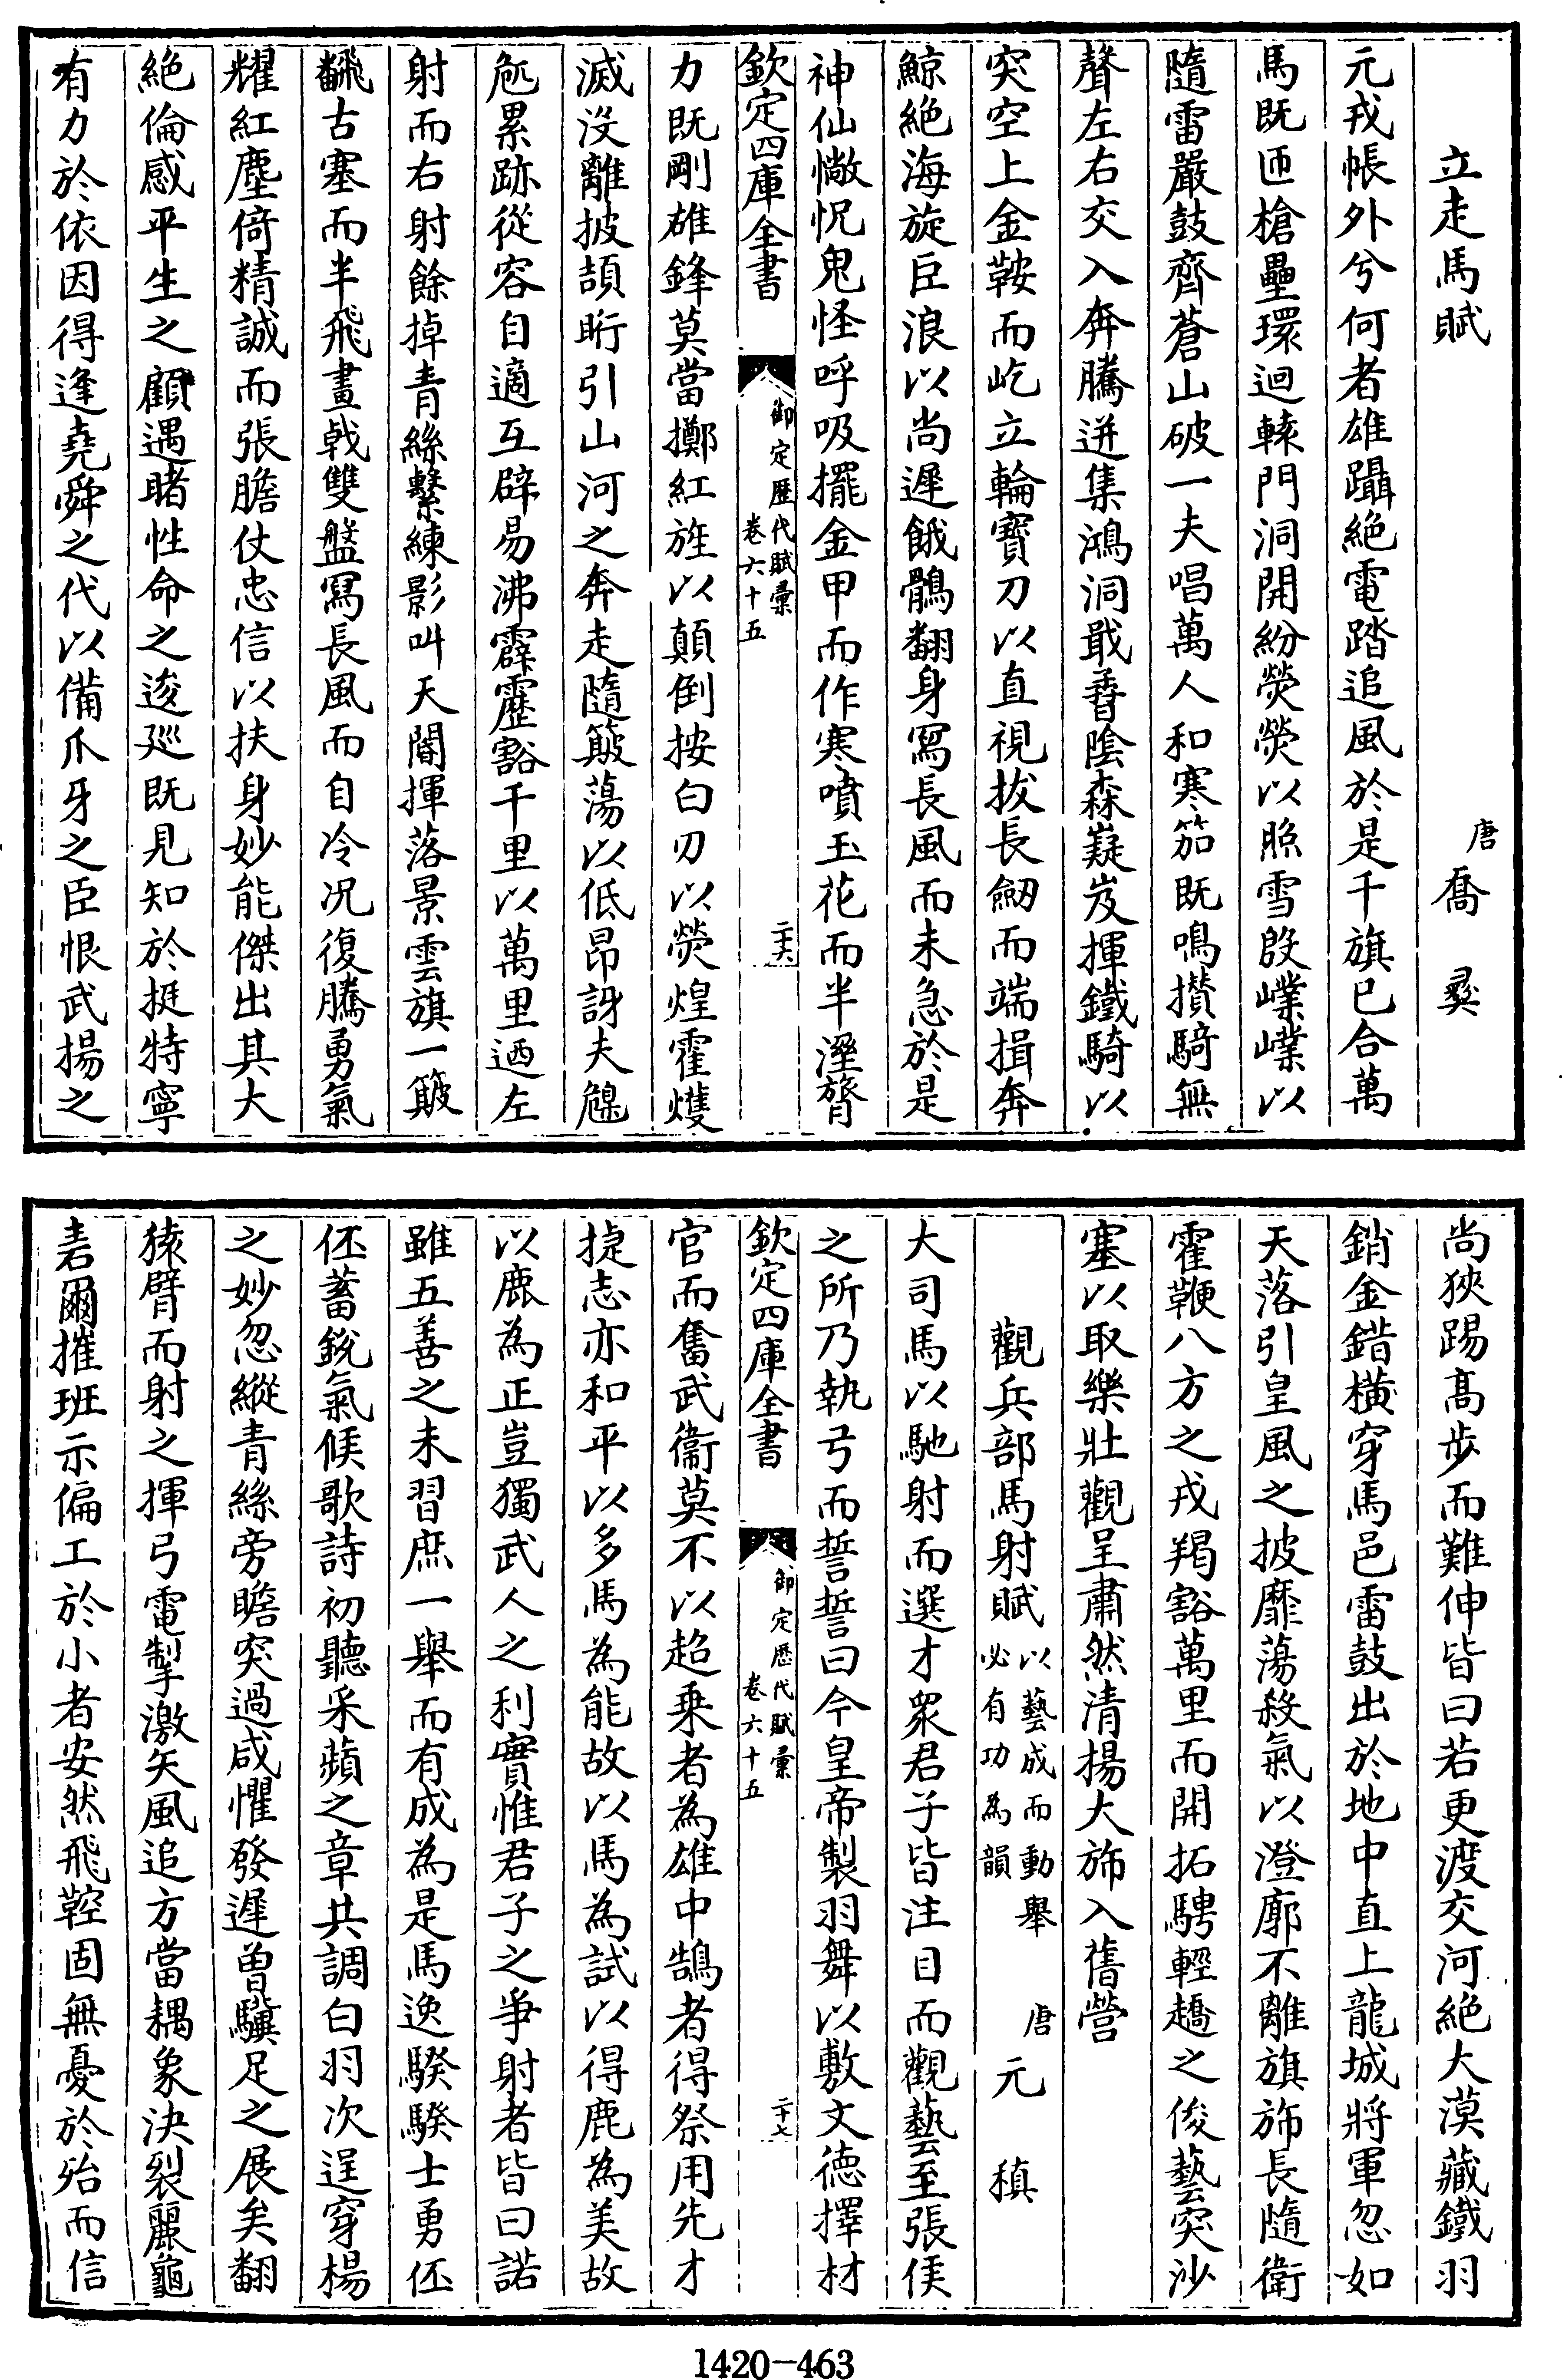 立走馬賦
唐喬彛
元戎帳外兮何者雄躡絶電踏追風於是千旗已合萬
馬既匝槍壘環迴轅門洞開紛熒熒以照雪啟嶫嶫以
隨雷嚴鼓齊蒼山破一夫唱萬人和寒笳既鳴攢騎無
聲左右交入奔騰迸集鴻洞戢孴陰森嶷岌揮鐵騎以
突空上金鞍而屹立輪寶刀以直視拔長劒而端揖奔
鯨絶海旋巨浪以尚遲餓鶻翻身冩長風而未急於是
神仙懒怳鬼怪呼吸擺金甲而作寒噴玉花而半溼膂
欽定四庫全書
御定歴代賦彙
卷六十五
二十六
力既剛雄鋒莫當擲紅旌以顛倒按白刃以熒煌霍㸌
滅沒離披頡䀪引山河之奔走隨簸蕩以低昂訝夫䫥
卼累跡從容自適互辟易沸霹靂豁千里以萬里迺左
射而右射餘掉青絲繫練影叫天閽揮落景雲旗一簸
飜古塞而半飛畫戟雙盤冩長風而自冷况復騰勇氣
耀紅塵倚精誠而張膽仗忠信以扶身妙能傑出其大
絶倫感平生之顧遇賭性命之逡廵既見知於挺特寧
有力於依因得逢堯舜之代以備爪牙之臣恨武揚之
尚狹踢髙步而難伸皆曰若更渡交河絶大漠藏鐵羽
銷金錯横穿馬邑雷鼓出於地中直上龍城將軍忽如
天落引皇風之披靡蕩殺氣以澄廓不離旗斾長隨衛
霍鞭八方之戎羯豁萬里而開拓騁輕趫之俊藝突沙
塞以取樂壯觀呈肅然清揚大斾入舊營
觀兵部馬射賦
以藝成而動舉
必有功為韻
唐元稹
大司馬以馳射而選才衆君子皆注目而觀藝至張侯
之所乃執弓而誓誓曰今皇帝製羽舞以敷文徳擇材
欽定四庫全書
御定歴代賦彙
卷六十五
二十七
官而奮武衛莫不以超乗者為雄中鵠者得祭用先才
捷志亦和平以多馬為能故以馬為試以得鹿為美故
以鹿為正豈獨武人之利實惟君子之爭射者皆曰諾
雖五善之未習庶一舉而有成為是馬逸騤騤士勇伾
伾蓄銳氣候歌詩初聽采蘋之章共調白羽次逞穿楊
之妙忽縱青絲旁瞻突過咸懼發遲曽驥足之展矣翻
猿臂而射之揮弓電掣激矢風追方當耦象決裂麗龜
砉爾摧班示偏工於小者安然飛鞚固無憂於殆而信
1420-463